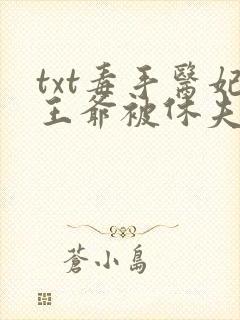 txt毒手醫妃
王爺被休夫
蒼小島